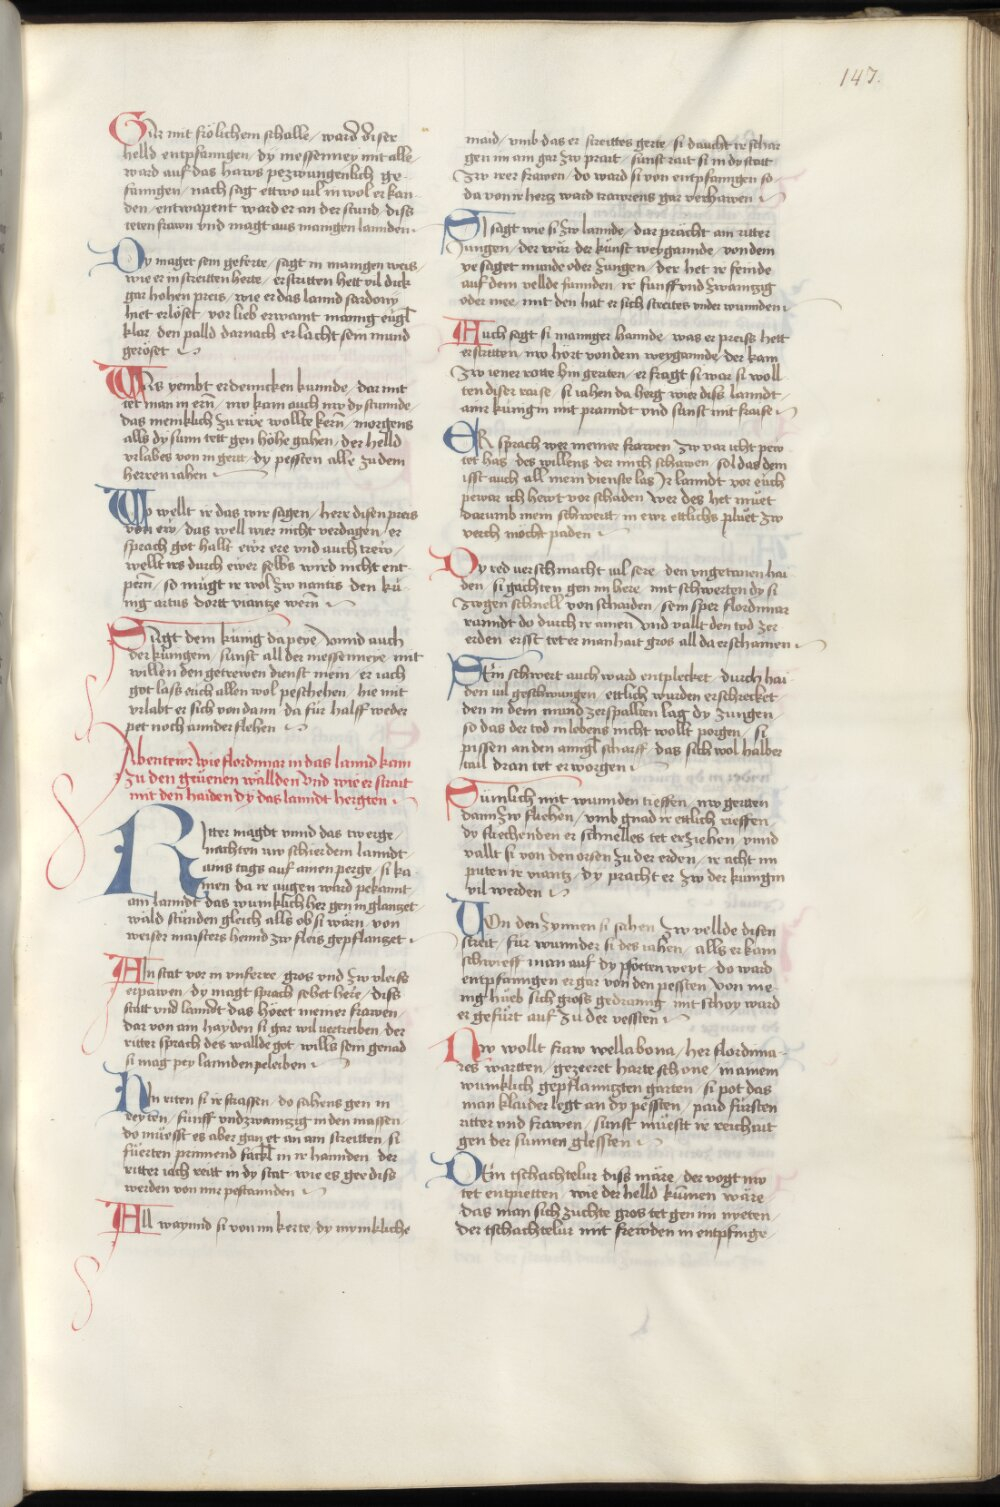 147.
Gar mit frölichem schalle / ward diser
helld entpfanngen / dy messenney mit alle /
ward auf das haws pezwungenlich ge-
fanngen / nach sag ettwo vil in wol erkan-
den / entwapent ward er an der stund / diss
teten frawn vnd magt aus manigen lannden
Dy maget sein geferte / sagt in manigen weis /
wie er in streitten herte / erstritten hett vil dick
gar hohen preis / wie er das lannd sardony
hiet erlöset / vor lieb erwaint manig eugl
klar / den palld darnach er lacht sein mund
geröset
Was yembt erdenncken kunnde / dar mit
tet man in ern / nw kam auch nw dy stunnde /
das menklich zu rwe wollte kern / morgens
alls dy sunn tett gen höhe gahen / der helld
vrlabes von in gert / dy pessten alle zu dem
herren iahen
Wo wellt ir das wir sagen / herr disen preis
von ew / das well wier nicht verdagen / er
sprach got hallt ewr ere vnd auch trew /
wellt irs durch ewer selbs wird nicht ent-
pern / so mügt ir wol zw nantis den kü-
nig artus dortt viantze wern
Sagt dem künig da peye / vnnd auch
der künigein / sunst all der messenneye mit
willen den getrewen dienst mein / er iach
got lass euch allen wol peschehen / hie mit
vrlabt er sich von dann / da für halff weder
pet noch annder flehen
Abentewr wie flordimar in das lannd kam
zu den grüenen wällden vnd wie er strait
mit den haiden dy das lanndt hergten
Ritter magdt vnnd das twerge /
nachten nw schier dem lanndt /
ains tags auf ainen perge / si ka
men da ir augen ward pekannt
ain lanndt das wunklich her gen in glanzet
wald stuonden gleich alls ob si wärn / von
weiser maisters hennd zw fleis gepflanzet
Ain stat vor in vnferre / gros vnd zw vleiss
erpawen / dy magt sprach sehet herr / diss
statt vnd lanndt das höret meiner frawen /
dar von ain hayden si gar wil vertreiben / der
ritter sprach des wallde got wills sein genad
si mag pey lannden peleiben
In riten si ir strassen / do sahens gen in
reyten / fünff vnd zwainzig in den massen /
do müesst es aber gan et an ain streitten / si
füerten prinnend fackl in ir hannden / der
ritter iach reitt in dy stat / wie es gee diss
werden von mir pestannden
All waynnd si von im kerte / dy mynnkliche
maid / vmb das er streittes gerte / si daucht ir schar
gen im ain gar zw prait / sunst rait si in dy statt
zw irer frawen / do ward si von entpfanngen so
da von ir herz ward trawrens gar verhawen
Si sagt wie si zw lannde / dar pracht ain ritter
Jungen / der wär der künst weygannde / von dem
ye saget munde oder zungen / der het ir feinde
auf dem vellde funnden / ir fünff vnd zwaintzig
oder mee / mit den hat er sich streites vnder wunnden
Auch sagt si maniger hannde / was er preiss hett
erstritten / nw hört von dem weygannde / der kam
zw iener rotte hin geriten / er fragt si war si woll
ten diser raise / si iahen da herg wier diss lanndt /
ainr künigin mit pranndt vnd sunst mit fraise
Er sprach wer meiner frawen / zw var icht pew
tet has / des willens der mich schawen / sol das dem
isst auch all mein dienste las / Ir lanndt vor euch
pewar ich hewt vor schaden / wer des het muet
darumb mein schwertt / in ewr ettlichs pluet zw
verch möcht paden
Dy red verschmacht vil sere / den vngetauen hai
den / si gachten gen im here / mit schwerten dy si
zwgen schnell von schaiden / sein sper flordimar
ranndt do durch ir ainen / vnd vallt den tod zer
erden / ersst tet er manhait gros all da erschainen
Sein schwert auch ward entplecket / durch hai
den vil geschwungen / ettlich wurden erschrecket /
den in dem mund zerspallten lag dy zungen /
so das der tod in lebens nicht wollt porgen / si
pissen an den anngl scharff / das sich wol halber
tail dran tet erworgen
Sümlich mit wunnden tieffen / nw gerten
dann zw fliehen / vmb gnad ir ettlich rieffen /
dy fliechenden er schnelles tet erziehen / vnnd
vallt si von den orsen zu der erden / ir acht im
puten ir viantz / dy pracht er zw der künigin
vil werden
Von den zynnen si sahen / zw vellde disen
streit / für wunnder si des iahen / alls er kam
schwieff man auf dy pfortten weyt / do ward
entpfanngen er gar von den pessten / von me-
nig hueb sich gross gedranng / mit schoy ward
er gefürt auf zu der vessten
Nw wollt fraw wellabona / her flordima-
res wartten / gezieret harte schone / in ainem
wunklich gepflannzten garten / si pot das
man klaider legt an dy pessten / paid fürsten
ritter vnd frawen / sunst müesst ir reichait
gen der sunnen glessten
Dem tschachtelur diss märe / der vogt nw
tet entpietten / wie der helld kumen wäre
das man sich zuchte gros tet gen im nyeten /
der tschachtelur mit frewden in entpfinge